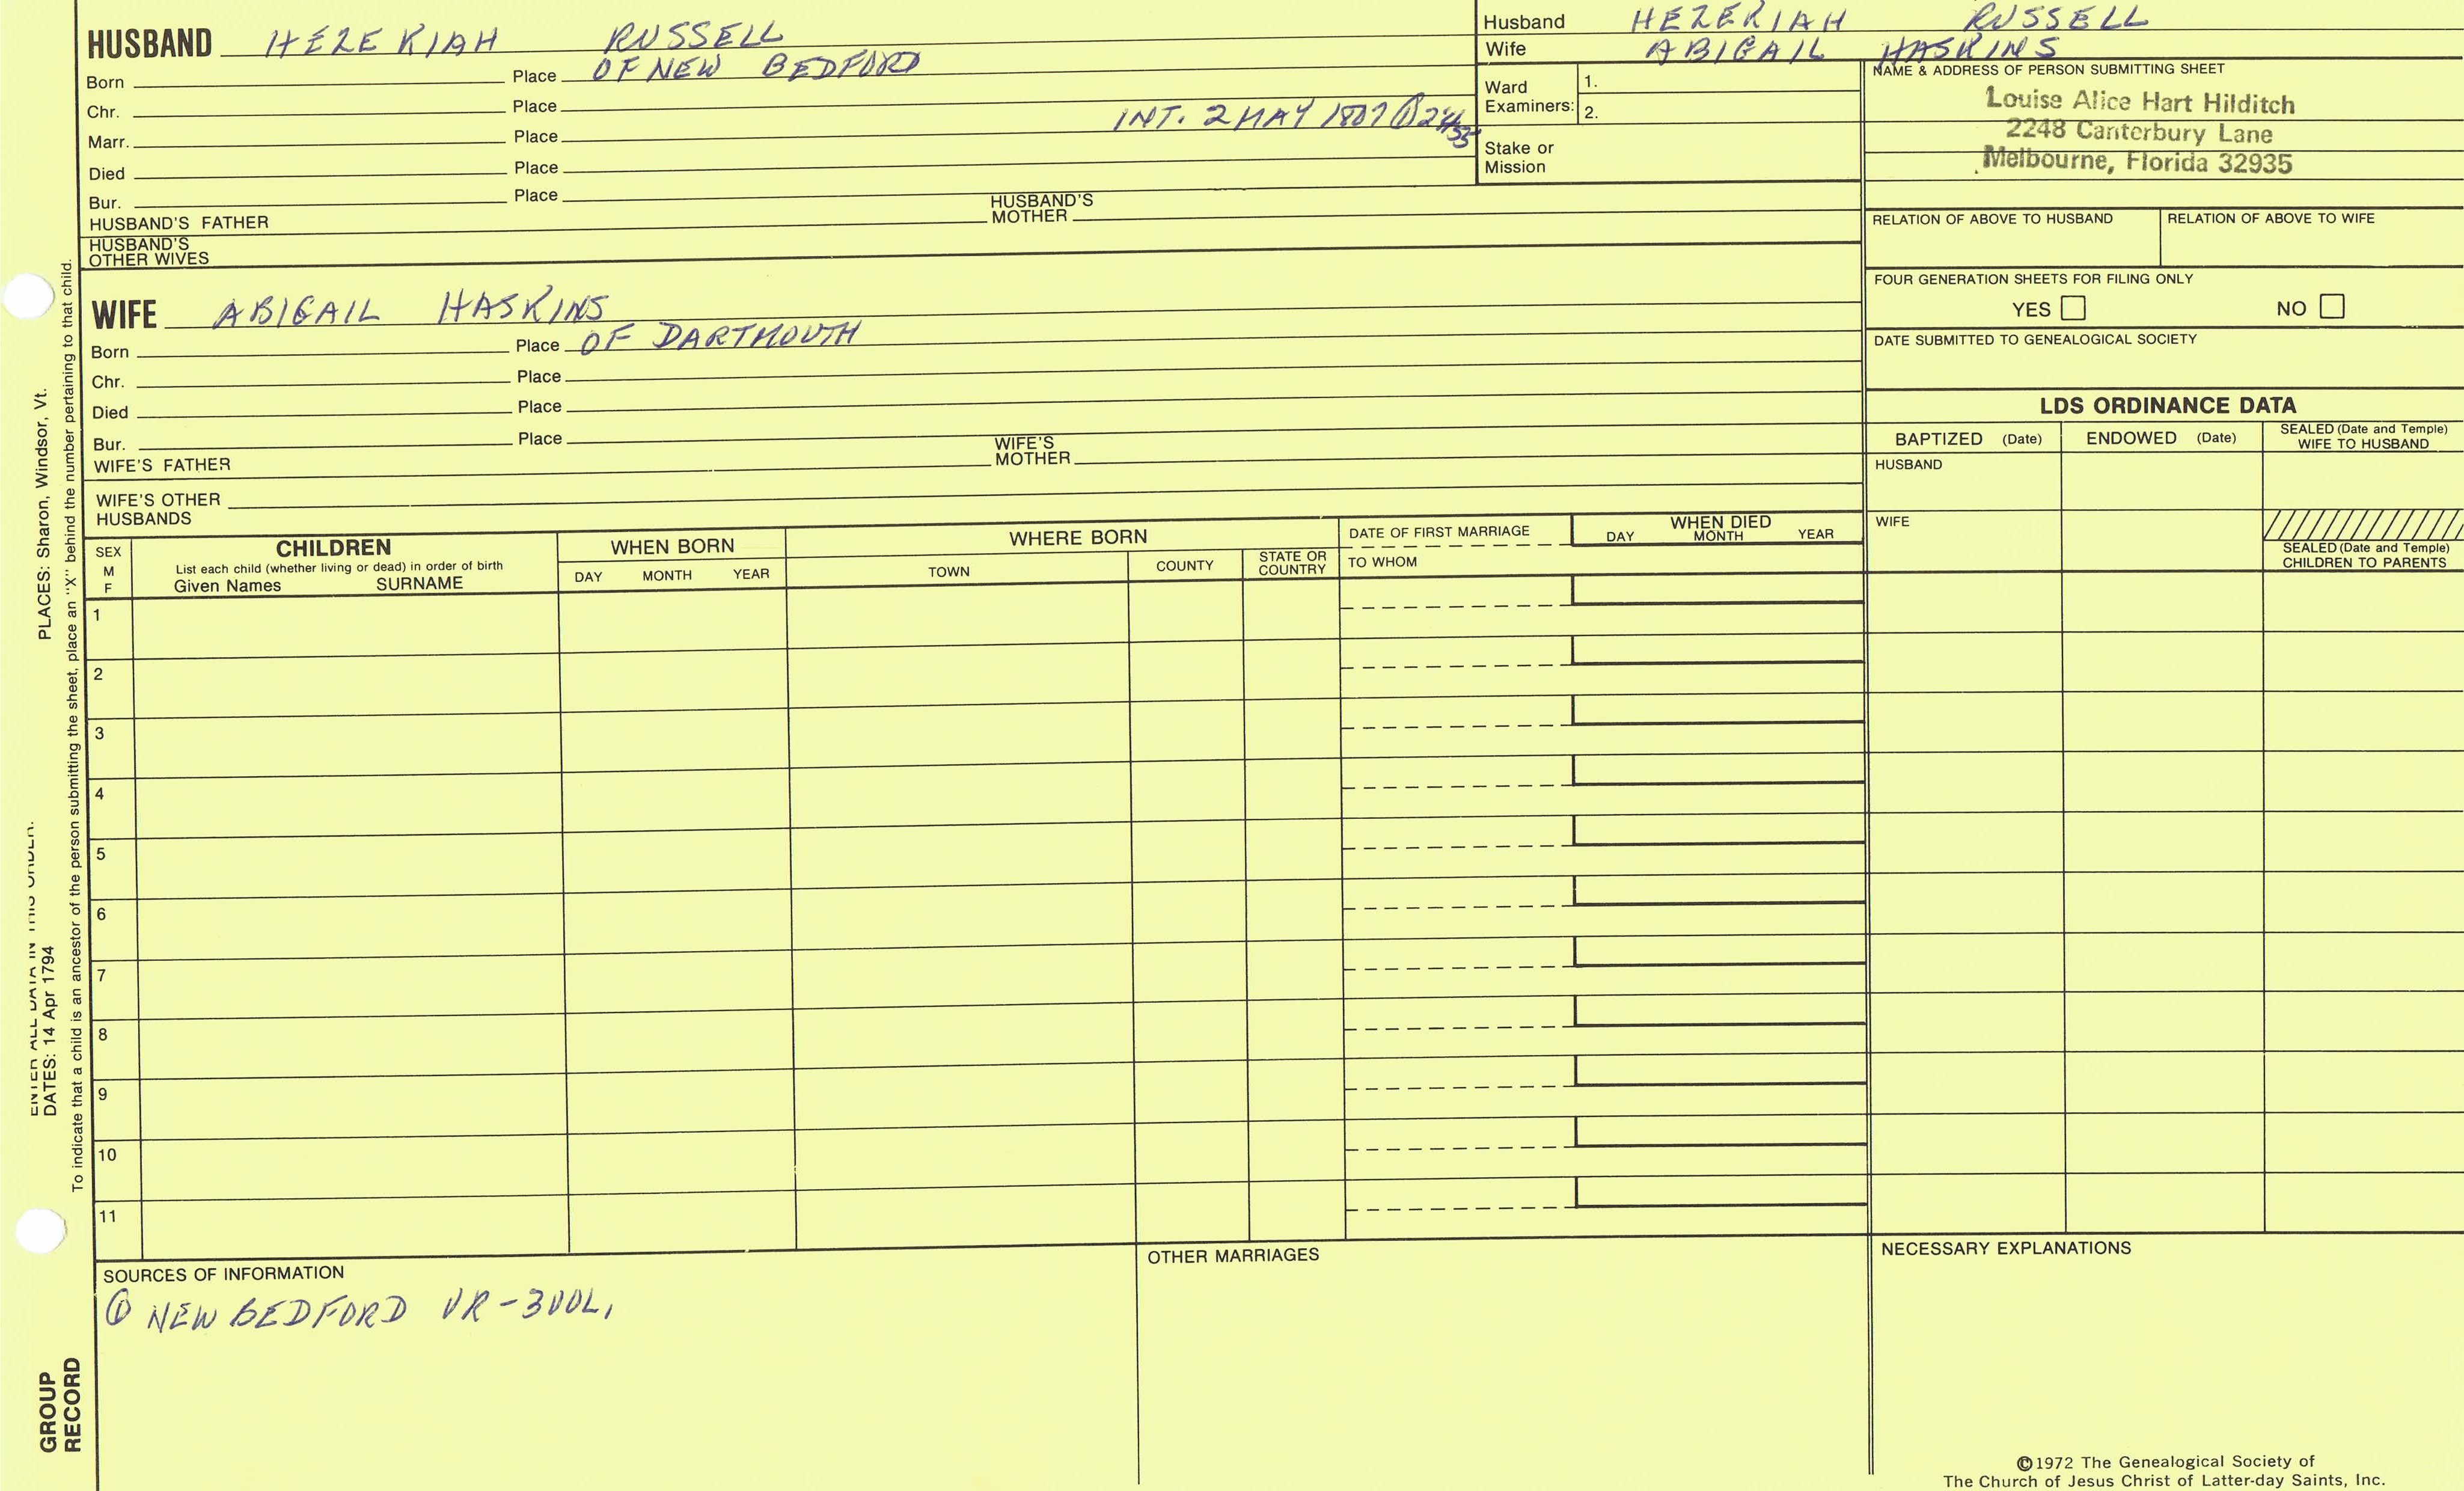 HUSBAND HEZEKIAH RUSSELL
Born Place OF NEW BEDFORD
Chr. Place
Marr. Place INT. 2 MAY 1807 ①
Died Place
Bur. Place
HUSBAND'S FATHER HUSBAND'S MOTHER
HUSBAND'S OTHER WIVES
Husband HEZEKIAH RUSSELL
Wife ABIGAIL HASKINS
Ward Examiners: 1.
2.
Stake or Mission
NAME & ADDRESS OF PERSON SUBMITTING SHEET
Louise Alice Hart Hilditch
2248 Canterbury Lane
Melbourne, Florida 32935
RELATION OF ABOVE TO HUSBAND RELATION OF ABOVE TO WIFE
FOUR GENERATION SHEETS FOR FILING ONLY
YES NO
DATE SUBMITTED TO GENEALOGICAL SOCIETY
WIFE ABIGAIL HASKINS
Born Place OF DARTMOUTH
Chr. Place
Died Place
Bur. Place
WIFE'S FATHER WIFE'S MOTHER
WIFE'S OTHER HUSBANDS
LDS ORDINANCE DATA
BAPTIZED (Date) ENDOWED (Date) SEALED (Date and Temple) WIFE TO HUSBAND
HUSBAND
WIFE
SEALED (Date and Temple) CHILDREN TO PARENTS
SEX M F
CHILDREN
List each child (whether living or dead) in order of birth
Given Names SURNAME
WHEN BORN
DAY MONTH YEAR
WHERE BORN
TOWN COUNTY STATE OR COUNTRY
DATE OF FIRST MARRIAGE
TO WHOM
WHEN DIED
DAY MONTH YEAR
1
2
3
4
5
6
7
8
9
10
11
SOURCES OF INFORMATION
① NEW BEDFORD VR - 3 VOL,
OTHER MARRIAGES
NECESSARY EXPLANATIONS
©1972 The Genealogical Society of
The Church of Jesus Christ of Latter-day Saints, Inc.
PLACES: Sharon, Windsor, Vt.
ENTER ALL DATA IN THIS ORDER:
DATES: 14 Apr 1794
To indicate that a child is an ancestor of the person submitting the sheet, place an "X" behind the number pertaining to that child.
GROUP
RECORD